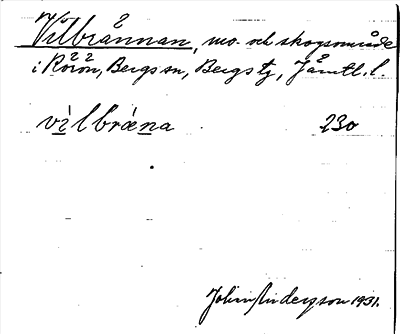 Vilbrånnan, mo- och skogsområde
i Rörön, Bergs sn, Bergs tg, Jämtl. l.
vìlbrǽna 230
John Anderzon 1931.